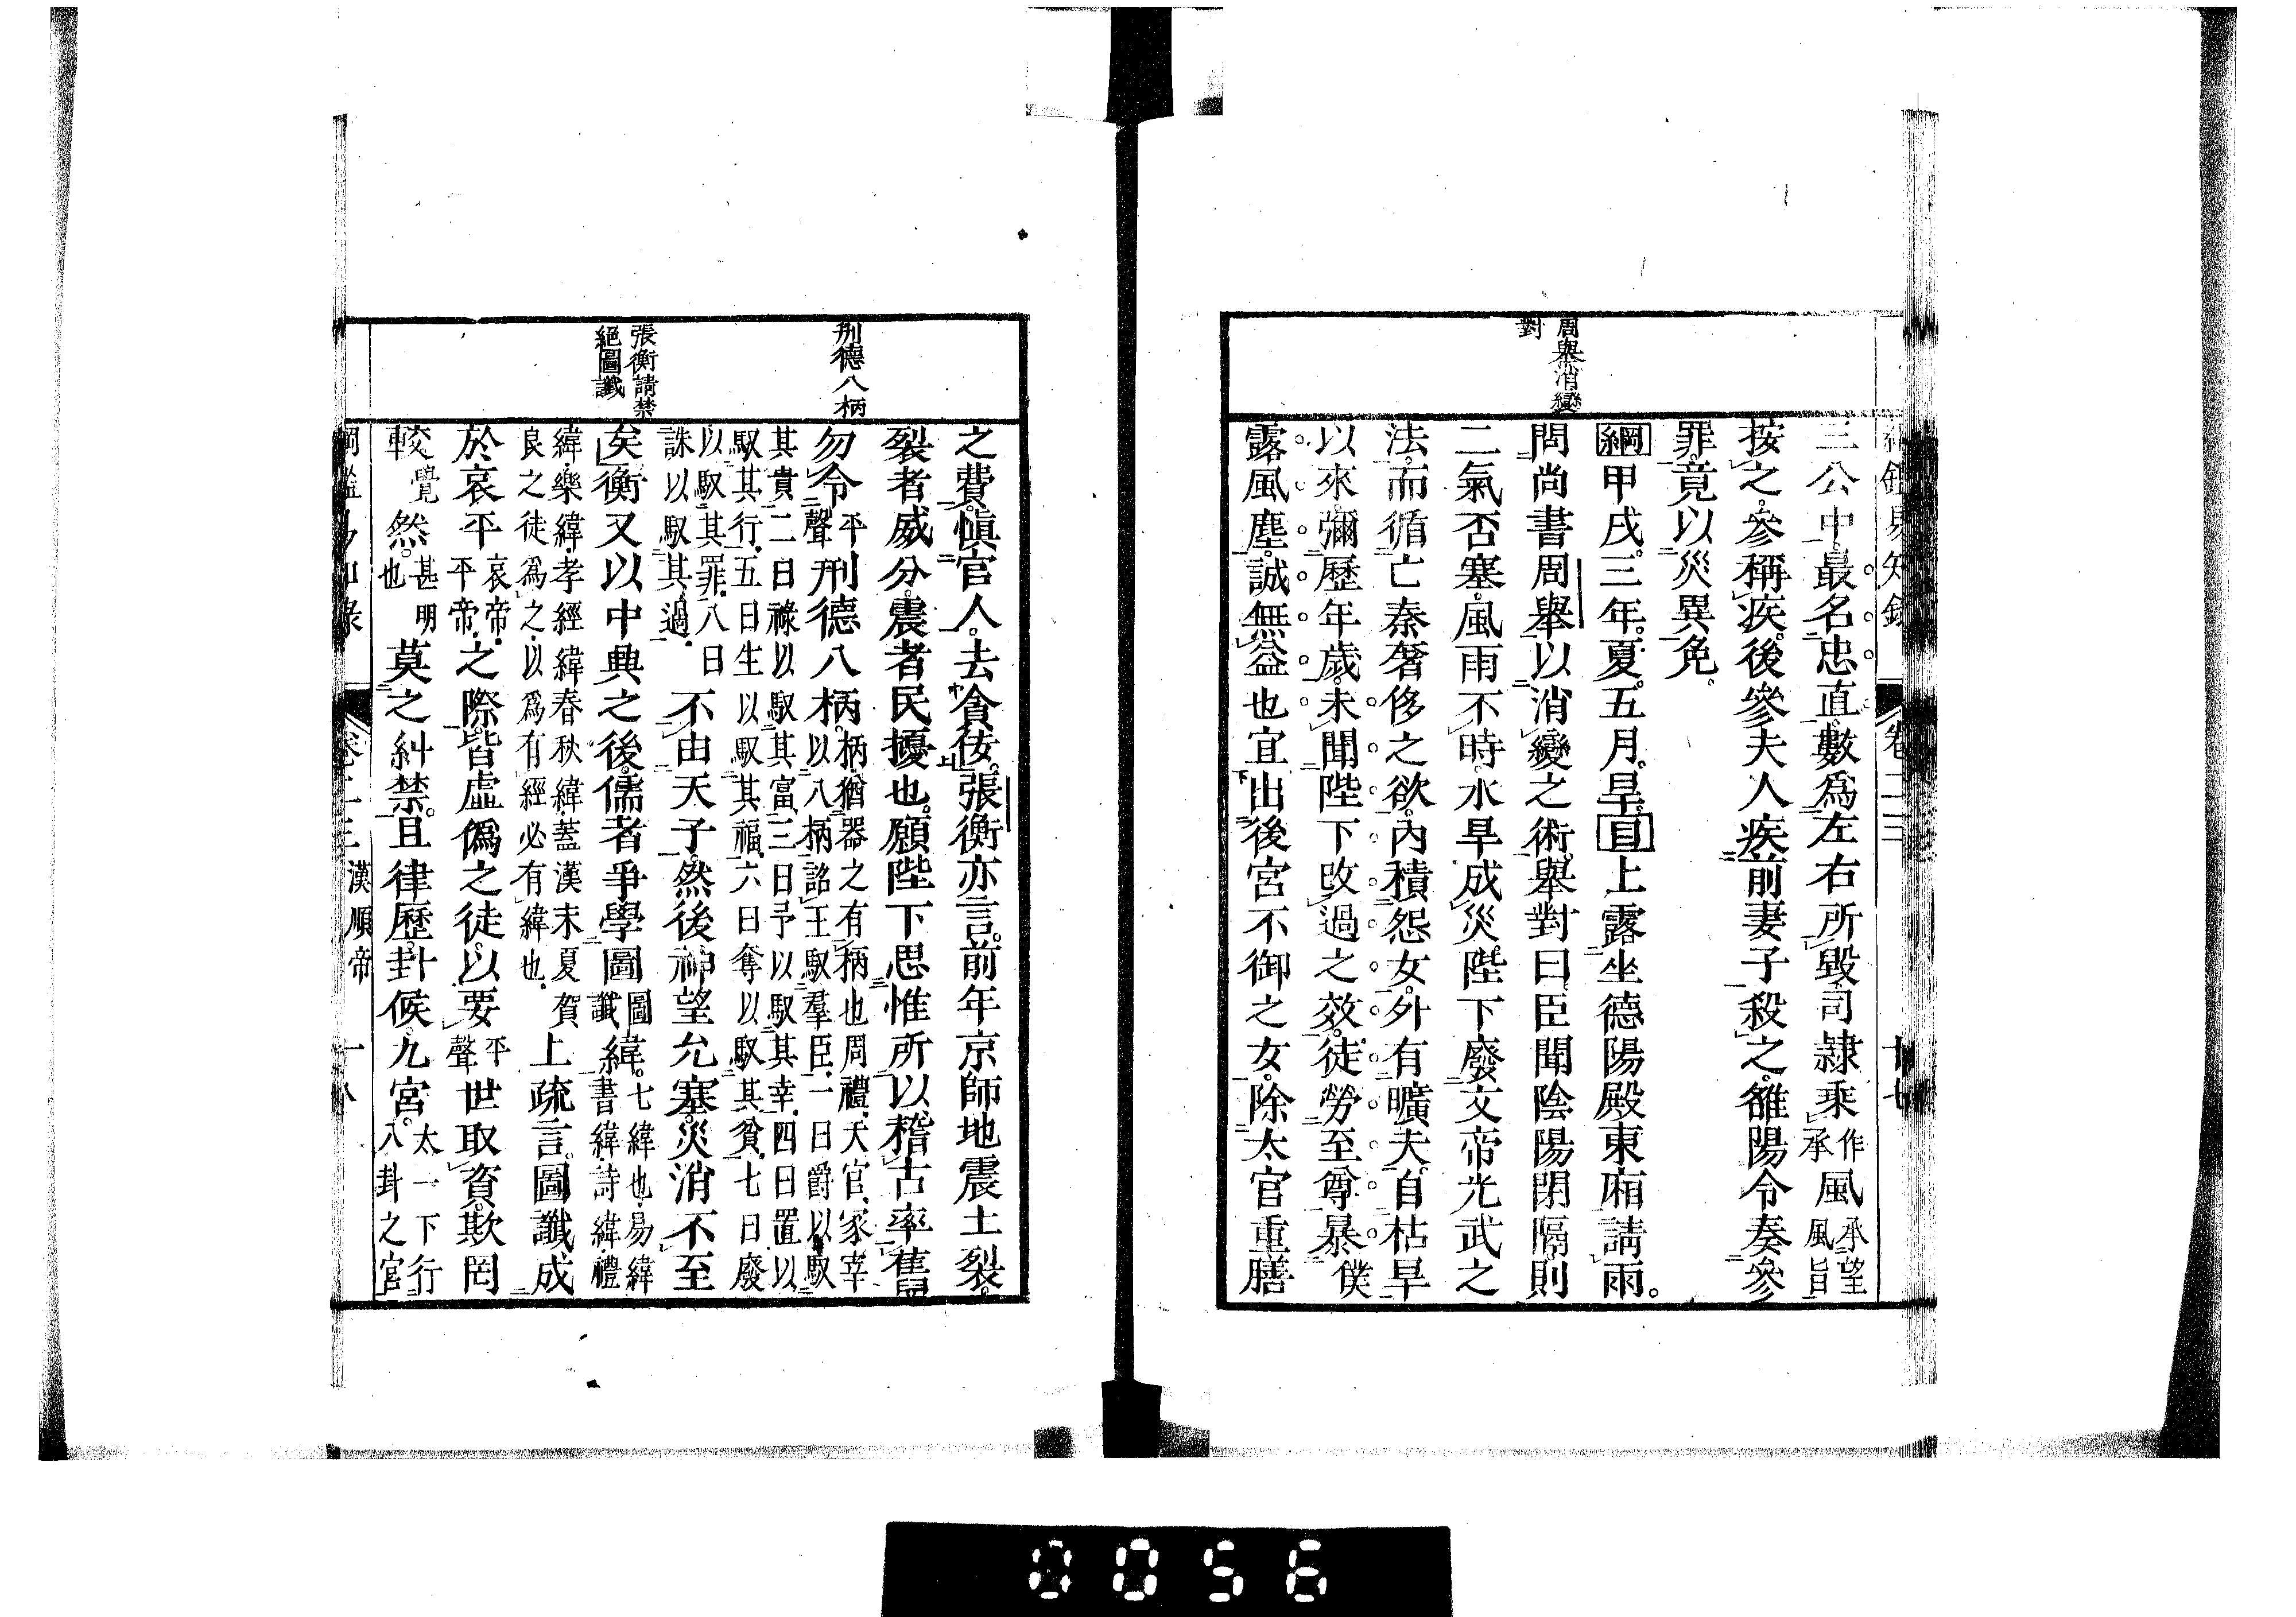 綱鑑易知錄 卷二三 廿七
周舉消變
對
三公中最名忠直。數爲左右所毀。司隸乘作承風承望風旨
按之。參稱疾。後參夫人疾前妻子殺之。雒陽令奏參
罪。竟以災異免。
綱甲戌。三年。夏。五月。旱。目上露坐德陽殿東廂請雨。
問尚書周舉以消變之術。舉對曰。臣聞陰陽閉隔。則
二氣否塞。風雨不時。水旱成災。陛下廢文帝光武之
法。而循亡秦奢侈之欲。內積怨女。外有曠夫。自枯旱
以來。彌歷年歲。未聞陛下改過之效。徒勞至尊暴僕
露風塵。誠無益也。宜出後宮不御之女。除太官重膳
刑德八柄
張衡請禁
絕圖讖
之費。愼官人。去貪佞。張衡亦言。前年京師地震土裂。
裂者威分。震者民擾也。願陛下思惟所以稽古率舊。
勿令平聲刑德八柄。柄。猶器之有柄也。周禮。天官。冢宰以八柄詔王馭羣臣。一曰爵以馭
其貴。二曰祿以馭其富。三曰予以馭其幸。四曰置以馭其行。五曰生以馭其福。六曰奪以馭其貧。七曰廢
以馭其罪。八曰誅以馭其過。不由天子。然後神望允塞。災消不至
矣。衡又以中典之後。儒者爭學圖讖圖讖緯。七緯也。易緯書緯。詩緯。禮
緯。樂緯。孝經緯。春秋緯。蓋漢末夏賀良之徒爲之。以爲有經必有緯也。上疏言。圖讖成
於哀平哀帝。平帝。之際。皆虛僞之徒。以要平聲世取資。欺罔
較覺然。甚明也莫之糾禁。且律歷。卦候。九宮。太一下行八卦之宮
綱鑑易知錄 卷二三 漢順帝 十八
0056